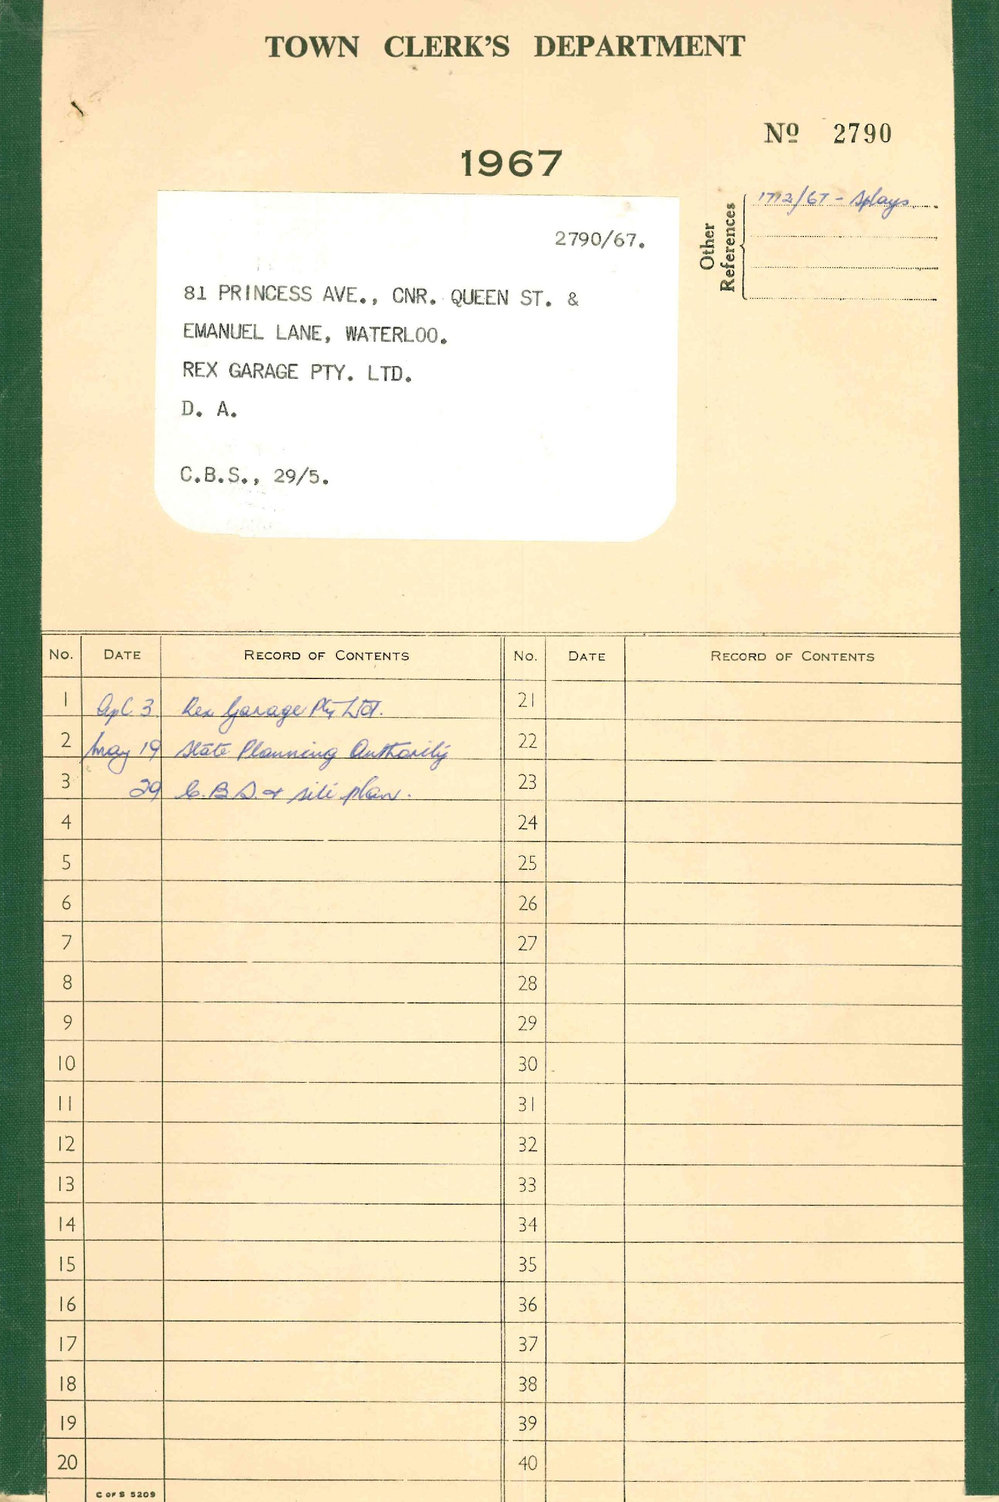 TOWN CLERK'S DEPARTMENT
Nº 2790
1967
Other References
1712/67 - Splays
2790/67.
81 PRINCESS AVE., CNR. QUEEN ST. &
EMANUEL LANE, WATERLOO.
REX GARAGE PTY. LTD.
D. A.
C.B.S., 29/5.
No. DATE RECORD OF CONTENTS No. DATE RECORD OF CONTENTS
1 Apl. 3 Rex Garage Pty Ltd. 21
2 May 19 State Planning Authority 22
3 29 C.B.S. + site plan. 23
4 24
5 25
6 26
7 27
8 28
9 29
10 30
11 31
12 32
13 33
14 34
15 35
16 36
17 37
18 38
19 39
20 40
C OF S 5209